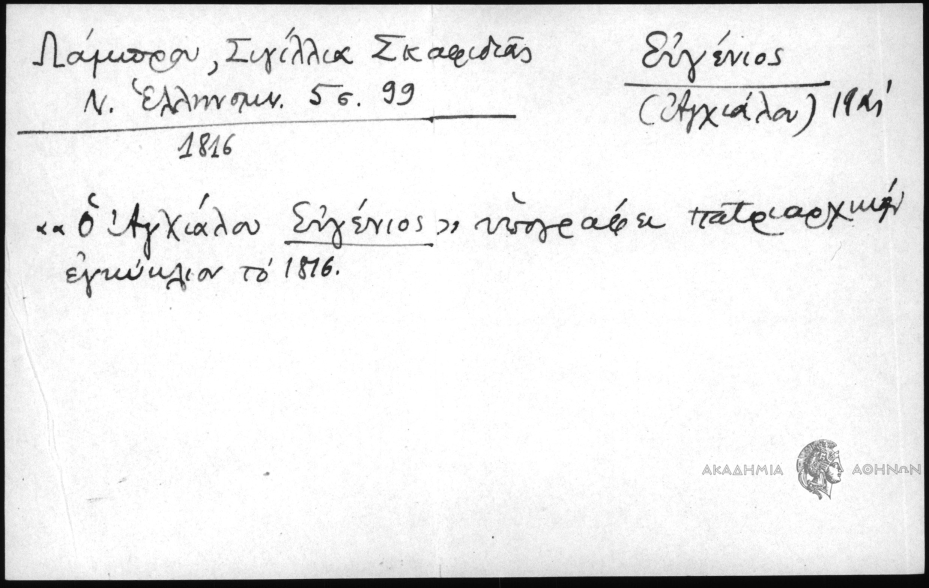 Λάμπρου, Σιγίλλια Σκαφιδιᾶς
Ν. Ἑλληνομν. 5 σ. 99
1816
Εὐγένιος
(Ἀγχιάλου) 19
«Ὁ Ἀγχιάλου Εὐγένιος» ὑπογράφει πατριαρχικὴν
ἐγκύκλιον τὸ 1816.
ΑΚΑΔΗΜΙΑ ΑΘΗΝΩΝ